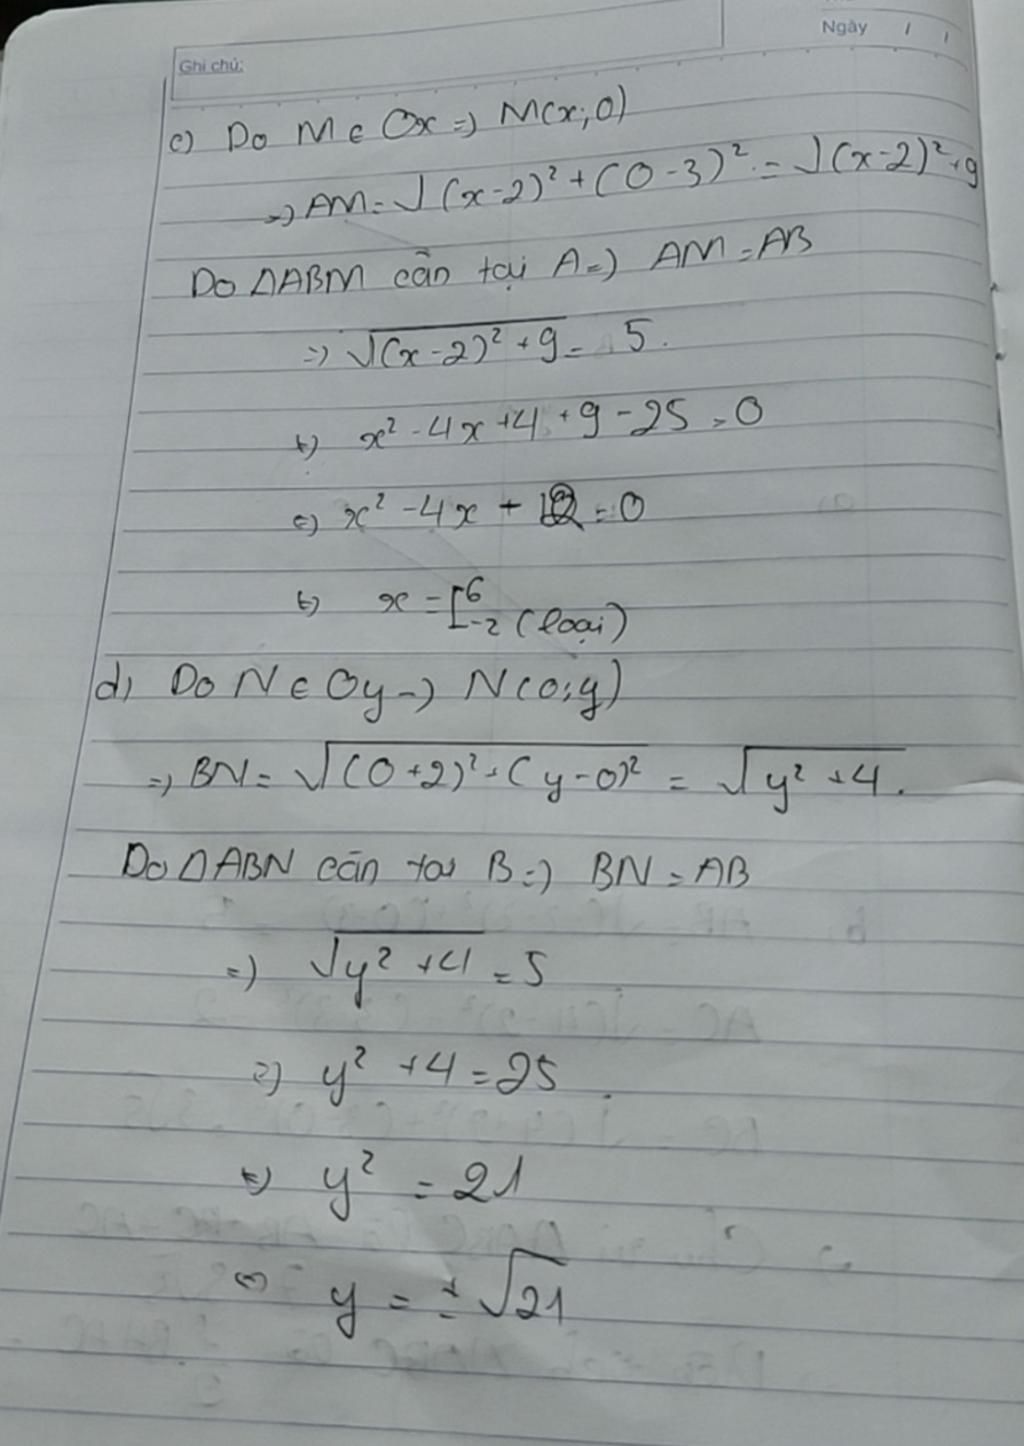 Ngày / /
Ghi chú:
c) Do M ∈ Ox => M(x; 0)
=> AM = √(x-2)² + (0-3)² = √(x-2)² + 9
Do △ABM cân tại A => AM = AB
=> √(x-2)² + 9 = 5.
<=> x² - 4x + 4 + 9 - 25 = 0
<=> x² - 4x + = 0
<=> x = [6
-2 (loại)
d) Do N ∈ Oy -> N(0; y)
=> BN = √(0+2)² + (y-0)² = √y² + 4.
Do △ABN cân tại B => BN = AB
=> √y² + 4 = 5
=> y² + 4 = 25
<=> y² = 21
<=> y = ±√21